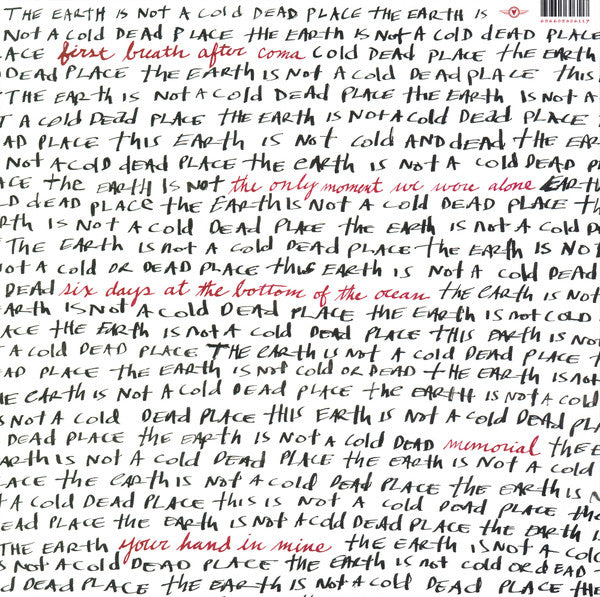 THE EARTH IS NOT A COLD DEAD PLACE THE EARTH IS
NOT A COLD DEAD PLACE THE EARTH IS NOT A COLD DEAD PLACE
ACE first breath after coma COLD DEAD PLACE THE EARTH
DEAD PLACE THE EARTH IS NOT A COLD DEAD PLACE THIS
THE EARTH IS NOT A COLD DEAD PLACE THE EARTH IS NOT A
T A COLD DEAD PLACE THE EARTH IS NOT A COLD DEAD PLACE
AD PLACE THIS EARTH IS NOT COLD AND DEAD THE EAR
NOT A COLD DEAD PLACE THE EARTH IS NOT A COLD DEAD P
ACE THE EARTH IS NOT the only moment we were alone EARTH
D DEAD PLACE THE EARTH IS NOT A COLD DEAD PLACE TH
RTH IS NOT A COLD DEAD PLACE THE EARTH IS NOT A COL
THE EARTH IS NOT A COLD DEAD PLACE THE EARTH IS NO
NOT A COLD OR DEAD PLACE THIS EARTH IS NOT A COLD DEA
DEAD six days at the bottom of the ocean THE EARTH IS NOT
ARTH IS NOT A COLD DEAD PLACE THE EARTH IS NOT COLD
ACE THE EARTH IS NOT A COLD DEAD PLACE THIS EARTH IS NO
T A COLD DEAD PLACE THE EARTH IS NOT A COLD DEAD PLACE
AD PLACE THE EARTH IS NOT COLD OR DEAD THE EARTH IS NOT
HE EARTH IS NOT A COLD DEAD PLACE THE EARTH IS NOT A COL
S NOT A COLD DEAD PLACE THIS EARTH IS NOT A COLD DEAD PL
DEAD PLACE THE EARTH IS NOT A COLD DEAD memorial THE E
ARTH IS NOT A COLD DEAD PLACE THE EARTH IS NOT A COLD
ACE THE EARTH IS NOT A COLD DEAD PLACE THE EARTH IS N
T A COLD DEAD PLACE THIS IS NOT A COLD DEAD PLACE THE
DEAD PLACE THE EARTH IS NOT A COLD DEAD PLACE THE EARTH IS
THE EARTH your hand in mine THE EARTH IS NOT A COL
NOT A COLD DEAD PLACE THE EARTH IS NOT COLD OR DEAD TH
D DEAD PLACE THE EARTH IS NOT A COLD DEAD PLACE THE EA